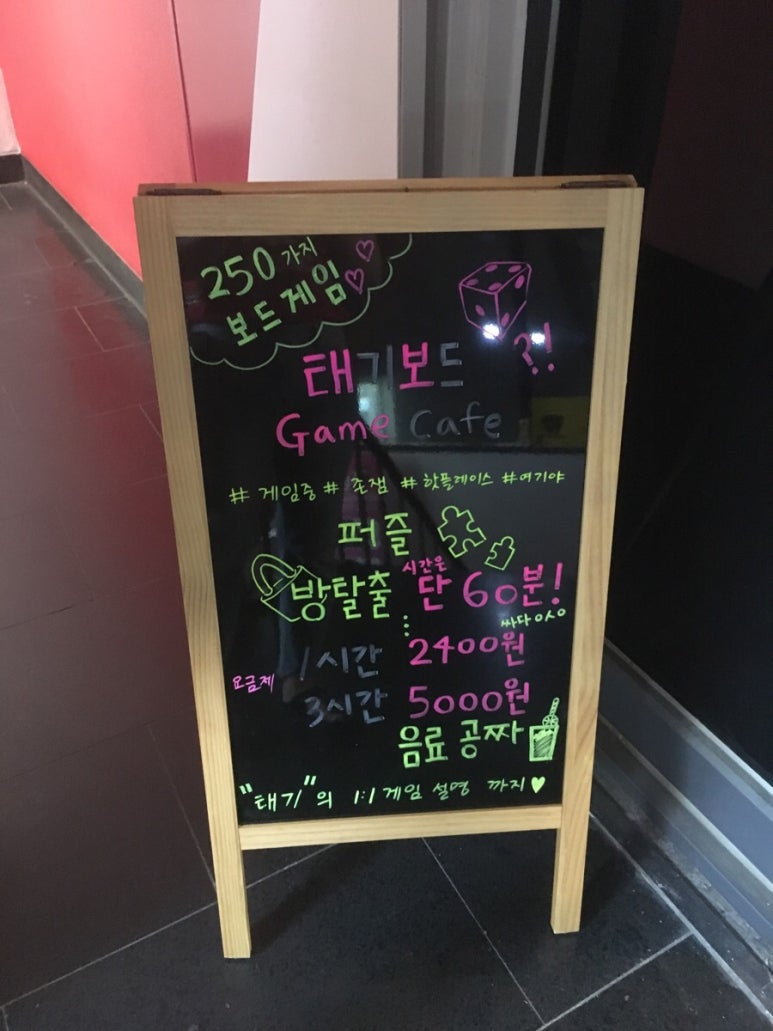 250 가지
보드게임
?!
태기보드
Game Cafe
# 게임중 # 존잼 # 핫플레이스 # 여기야
퍼즐
방탈출 시간은 단 60분!
싸다아싸
1시간 2400원
요금제
3시간 5000원
음료 공짜
"태기"의 1:1 게임 설명 까지♥